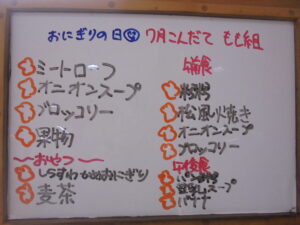 おにぎりの日 7月こんだて もも組
ミートローフ
オニオンスープ
ブロッコリー
果物
〜おやつ〜
しらすわかめおにぎり
麦茶
午前食
松風火焼き
オニオンスープ
ブロッコリー
午後食
バナナ